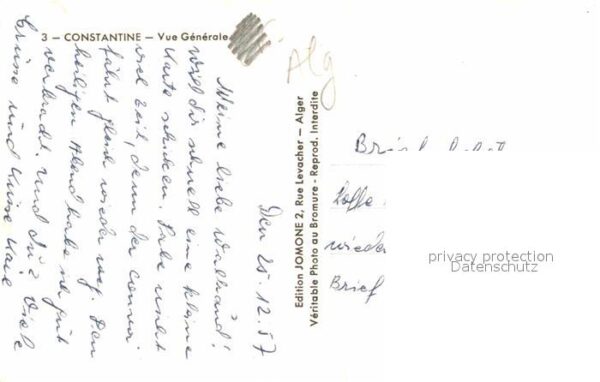 3 — CONSTANTINE — Vue Générale
Alg
Den 25.12.57
Meine liebe Waltraud!
will dir schnell eine kleine
Karte schicken. Habe nicht
viel Zeit, denn der
fährt gleich wieder weg. Den
heiligen Abend habe
verbracht. Und du? Viele
Grüsse und Küsse
Edition JOMONE 2, Rue Levacher — Alger
Véritable Photo au Bromure - Reprod. Interdite
wieder
Brief
privacy protection
Datenschutz